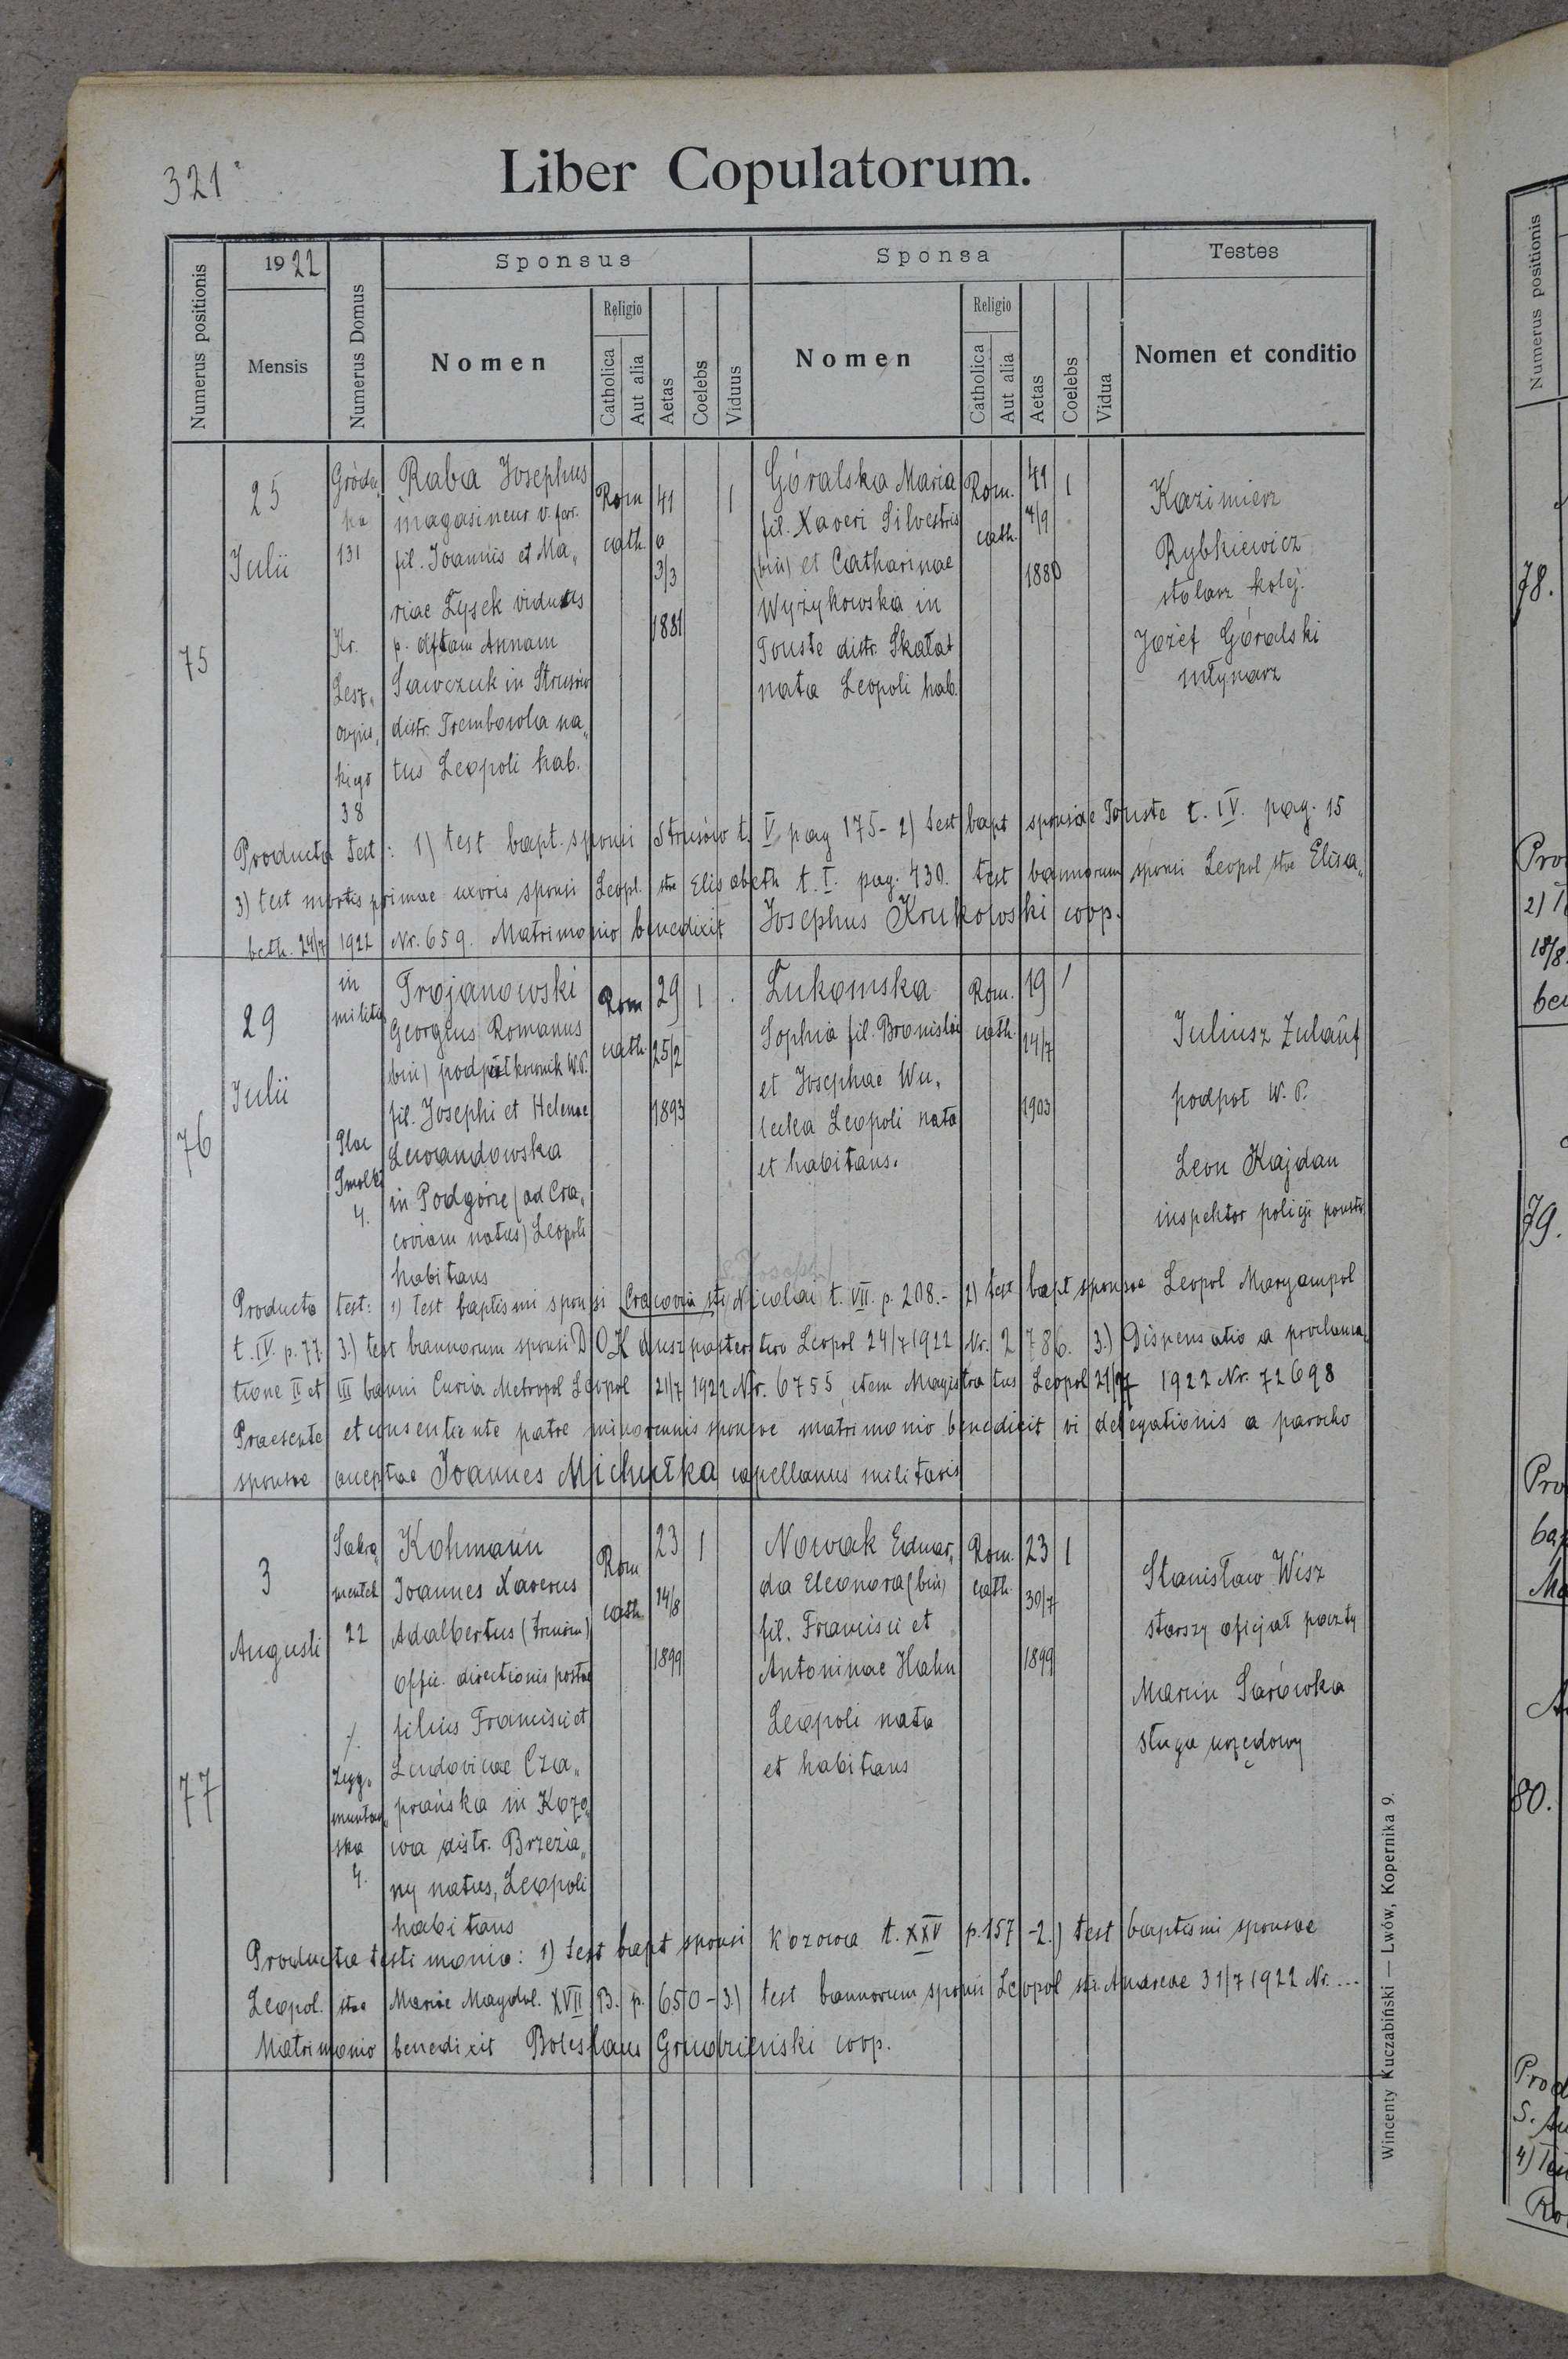 321
Liber Copulatorum.
Numerus positionis
1922
Mensis
Numerus Domus
Sponsus
Nomen
Religio
Catholica
Aut alia
Aetas
Coelebs
Viduus
Sponsa
Nomen
Religio
Catholica
Aut alia
Aetas
Coelebs
Vidua
Testes
Nomen et conditio
75
25
Julii
Gróde,
ka
131
Kr.
Lesz,
czyns,
kiego
38
Raba Josephus
magasineur v. ferr.
fil. Joannis et Ma,,
riae Łysek viduus
p. dftam Annam
Sawczuk in Strusów
distr. Trembowla na,,
tus Leopoli hab.
Rom
cath.
41
3/3
1881
1
Góralska Maria
fil. Xaveri Silvestris
(bin) et Catharinae
Wyżykowska in
Touste distr. Skałat
nata Leopoli hab.
Rom.
cath.
41
4/9
1880
1
Kazimierz
Rybkiewicz
stolarz kolej.
Józef Góralski
młynarz
Producta test: 1) test bapt. sponsi Strusów t. V pag 175- 2) test bapt sponsae Touste t. IV. pag. 15
3) test mortis primae uxoris sponsi Leopl. stae Elisabeth t. I. pag. 430. test bannorum sponsi Leopol stae Elisa,,
beth. 24/7 1922 Nr. 659. Matrimonio benedixit Josephus Krukowski coop.
76
29
Julii
in
militia
Plac
Smolki
4.
Trojanowski
Georgius Romanus
(bin) podpułkownik W.P.
fil. Josephi et Helenae
Lewandowska
in Podgórze (ad Cra,,
coviam natus) Leopoli
habitans
Rom
cath.
29
25/2
1893
1
Łukomska
Sophia fil. Bronislai
et Josephae Wu,
lecka Leopoli nata
et habitans.
Rom.
cath.
19
14/7
1903
1
Juliusz Zulauf
podpoł W. P.
Leon Kajdan
inspektor policji państw.
(S. Joseph)
Producta test: 1) test baptismi sponsi Cracovia sti Nicolai t. VII. p. 208.- 2) test bapt sponsae Leopol Maryampol
t. IV. p. 77. 3.) test bannorum sponsi D O K duszpasterstwo Leopol 24/7 1922 Nr. 2786. 3.) Dispensatio a proclama,
tione II et III banni Curia Metropol Leopol 21/7 1922 Nr. 6755 item Magistratus Leopol 21/7 1922 Nr. 72698
Praesente et consentiente patre minorennis sponsae matrimonio benedixit vi delegationis a parocho
sponsae acceptae Joannes Michułka capellanus militaris
77
3
Augusti
Sakra,
mentek
22
/.
Zyg,,
muntow,
ska
4.
Kohmann
Joannes Xaverus
Adalbertus (trinom)
offic. directionis postae
filius Francisci et
Ludovicae Cza,,
prańska in Kozo,
wa distr. Brzeża,,
ny natus, Leopoli
habitans
Rom
cath.
23
14/8
1899
1
Nowak Eduar,,
da Eleonora (bin)
fil. Francisci et
Antoninae Hahn
Leopoli nata
et habitans
Rom.
cath.
23
30/7
1899
1
Stanisław Wisz
starszy oficjał poczty
Marcin Sarówka
sługa urzędowy
Producta testimonia: 1) test bapt sponsi Kozowa t. XXV p. 157 -2.) test baptismi sponsae
Leopol. stae Mariae Magdal. XVII B. p. 650 - 3.) test bannorum sponsi Leopol sti. Andreae 31/7 1922 Nr. ...
Matrimonio benedixit Boleslaus Grudzieński coop.
Wincenty Kuczabiński — Lwów, Kopernika 9.
Numerus positionis
78.
79.
80.